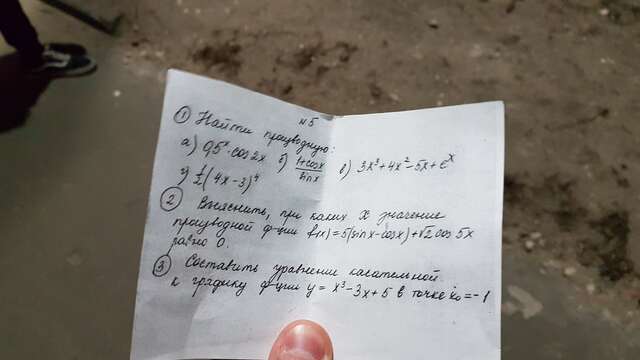 №5
① Найти производную:
а) 0,5ˣ · cos2x б) (1+cosx)/(sin x) в) 3x³+4x²-5x+eˣ
г) 1/2(4x-3)⁴
② Выяснить, при каких x значение
производной ф-ции f(x)=5(sinx-cosx)+√2cos5x
равно 0.
③ Составить уравнение касательной
к графику ф-ции y=x³-3x+5 в точке x₀=-1